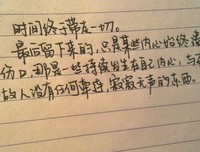 时间终于带走一切。
最后留下来的,只是某些内心的终溃
伤口,那是一些持续发生在自己内心,与
故人没有任何牵挂,寂寂无声的东西。